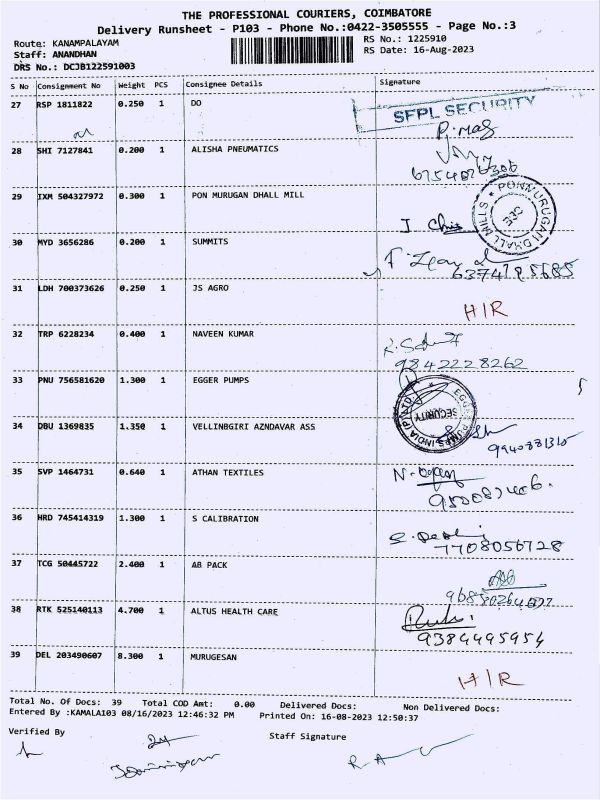 THE PROFESSIONAL COURIERS, COIMBATORE
Delivery Runsheet - P103 - Phone No.:0422-3505555 - Page No.:3
Route: KANAMPALAYAM RS No.: 1225910
Staff: ANANDHAN RS Date: 16-Aug-2023
DRS No.: DCJB122591003
S No Consignment No Weight PCS Consignee Details Signature
27 RSP 1811822 0.250 1 DO
SFPL SECURITY
28 SHI 7127841 0.200 1 ALISHA PNEUMATICS
29 IXM 504327972 0.300 1 PON MURUGAN DHALL MILL
30 MYD 3656286 0.200 1 SUMMITS
31 LDH 700373626 0.250 1 JS AGRO
H/R
32 TRP 6228234 0.400 1 NAVEEN KUMAR
9842228262
33 PNU 756581620 1.300 1 EGGER PUMPS
SECURITY
34 DBU 1369835 1.350 1 VELLINBGIRI AZNDAVAR ASS
35 SVP 1464731 0.640 1 ATHAN TEXTILES
36 HRD 745414319 1.300 1 S CALIBRATION
7708056728
37 TCG 50445722 2.400 1 AB PACK
38 RTK 525140113 4.700 1 ALTUS HEALTH CARE
9384495954
39 DEL 203490607 8.300 1 MURUGESAN
H/R
Total No. Of Docs: 39 Total COD Amt: 0.00 Delivered Docs: Non Delivered Docs:
Entered By :KAMALA103 08/16/2023 12:46:32 PM Printed On: 16-08-2023 12:50:37
Verified By Staff Signature